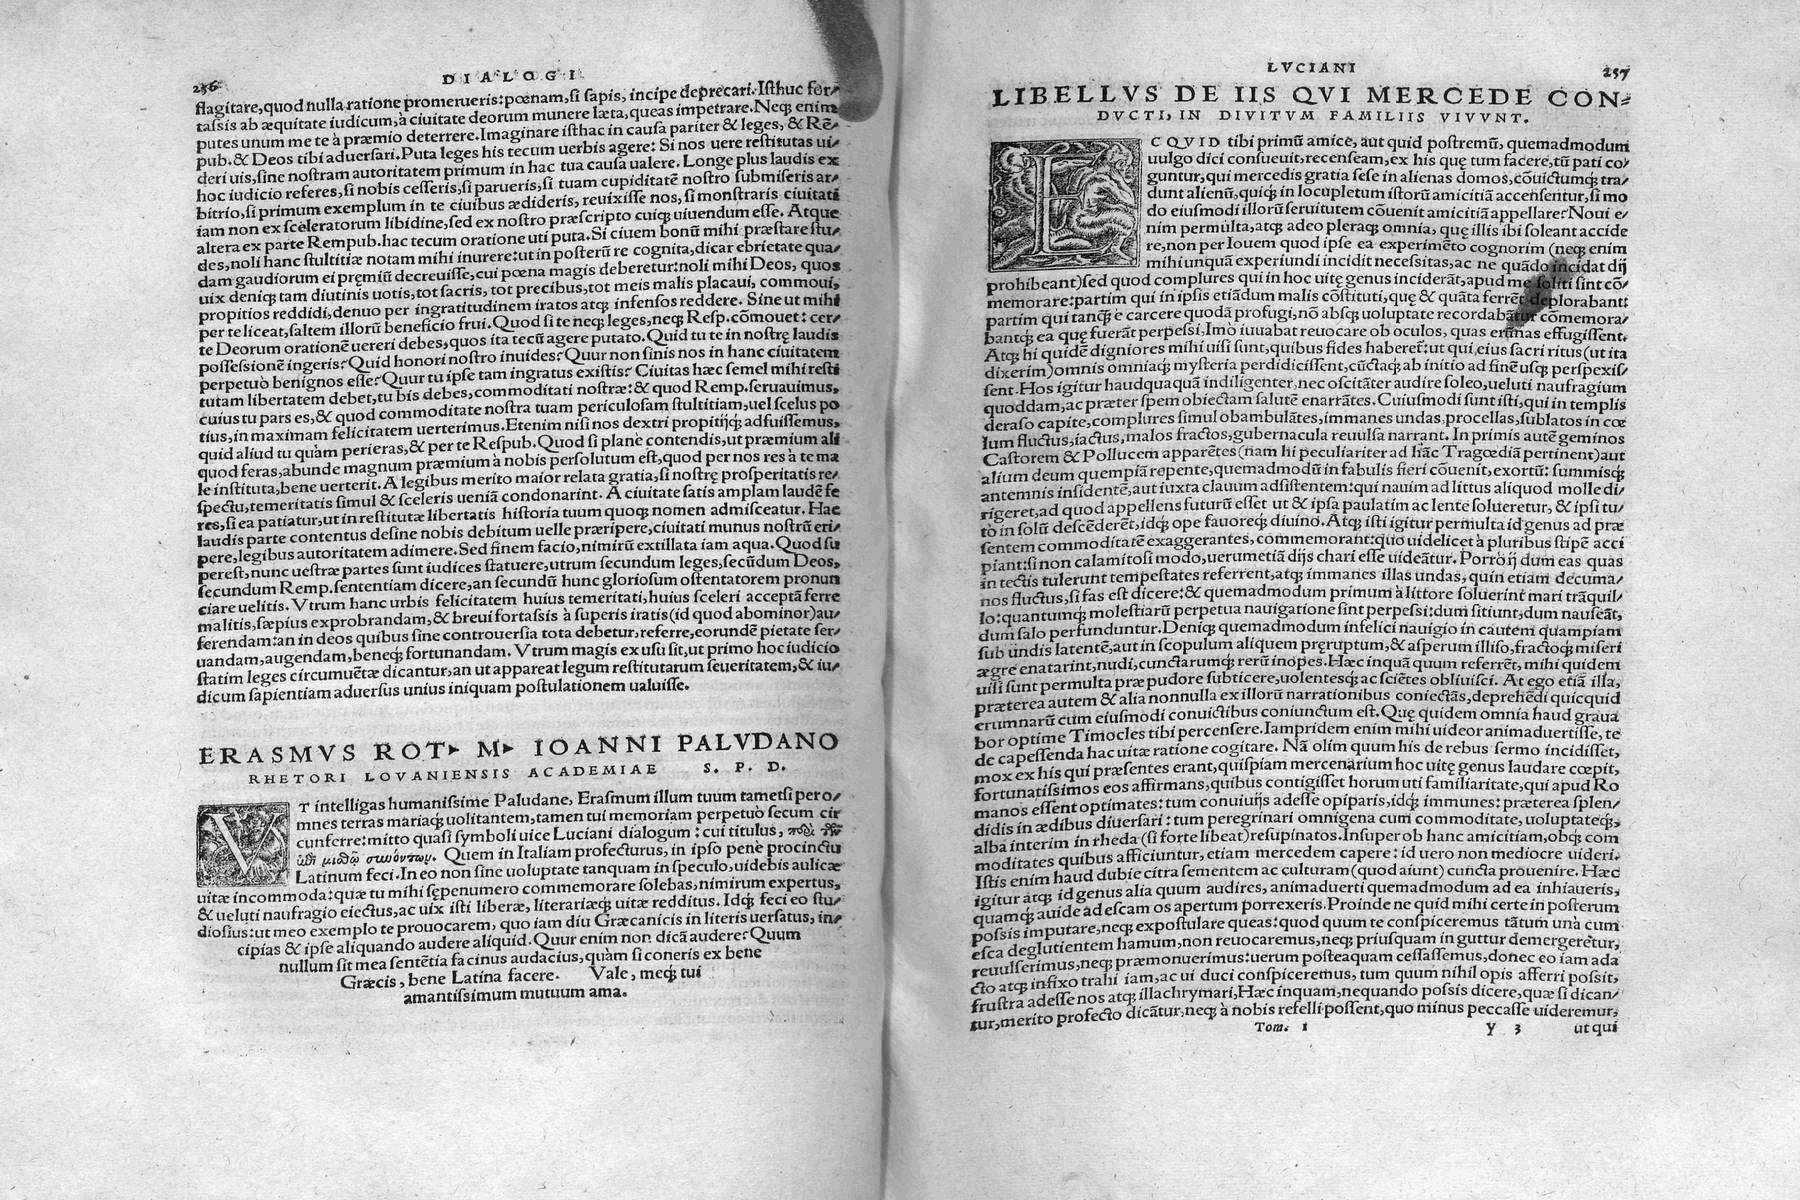 256 DIALOGI
flagitare,quod nulla ratione promerueris:pœnam,si sapis, incipe deprecari.Isthuc for⸗
tassis ab æquitate iudicum,à ciuitate deorum munere læta,queas impetrare.Neq; enim
putes unum me te à præmio deterrere.Imaginare isthac in causa pariter & leges, & Rē⸗
pub.& Deos tibi aduersari.Puta leges his tecum uerbis agere: Si nos uere restitutas ui⸗
deri uis,sine nostram autoritatem primum in hac tua causa ualere. Longe plus laudis ex
hoc iudicio referes,si nobis cesseris,si parueris,si tuam cupiditatē nostro submiseris ar⸗
bitrio,si primum exemplum in te ciuibus ædideris, reuixisse nos, si monstraris ciuitati
iam non ex sceleratorum libidine,sed ex nostro præscripto cuiq; uiuendum esse. Atque
altera ex parte Rempub.hac tecum oratione uti puta.Si ciuem bonū mihi præstare stu⸗
des,noli hanc stultitiæ notam mihi inurere:ut in posterū re cognita,dicar ebrietate qua⸗
dam gaudiorum ei pręmiū decreuisse,cui pœna magis deberetur:noli mihi Deos, quos
uix deniq; tam diutinis uotis,tot sacris, tot precibus,tot meis malis placaui, commoui,
propitios reddidi,denuo per ingratitudinem iratos atq; infensos reddere. Sine ut mihi
per te liceat,saltem illorū beneficio frui.Quod si te neq; leges,neq; Resp.cōmouet: cer⸗
te Deorum orationē uereri debes,quos ita tecū agere putato.Quid tu te in nostrę laudis
possessionē ingeris?Quid honori nostro inuides? Quur non sinis nos in hanc ciuitatem
perpetuò benignos esse?Quur tu ipse tam ingratus existis? Ciuitas hæc semel mihi resti
tutam libertatem debet,tu bis debes,commoditati nostræ:& quod Remp.seruauimus,
cuius tu pars es,& quod commoditate nostra tuam periculosam stultitiam,uel scelus po
tius,in maximam felicitatem uerterimus.Etenim nisi nos dextri propitijq; adfuissemus,
quid aliud tu quàm perieras,& per te Respub.Quod si plane contendis,ut præmium ali
quod feras,abunde magnum præmium à nobis persolutum est,quod per nos res à te ma
le instituta,bene uerterit.A legibus merito maior relata gratia,si nostrę prosperitatis re⸗
spectu,temeritatis simul & sceleris ueniā condonarint. A ciuitate satis amplam laudē fe
res,si ea patiatur,ut in restitutæ libertatis historia tuum quoq; nomen admisceatur. Hac
laudis parte contentus desine nobis debitum uelle præripere,ciuitati munus nostrū eri⸗
pere,legibus autoritatem adimere.Sed finem facio,nimirū extillata iam aqua.Quod su
perest,nunc uestræ partes sunt iudices statuere,utrum secundum leges,secūdum Deos,
secundum Remp.sententiam dicere,an secundū hunc gloriosum ostentatorem pronun
ciare uelitis. Vtrum hanc urbis felicitatem huius temeritati,huius sceleri acceptā ferre
malitis,sæpius exprobrandam,& breui fortassis à superis iratis(id quod abominor)au⸗
ferendam:an in deos quibus sine controuersia tota debetur,referre,eorundē pietate ser⸗
uandam,augendam,beneq; fortunandam. Vtrum magis ex usu sit,ut primo hoc iudicio
statim leges circumuētæ dicantur,an ut appareat legum restitutarum seueritatem,& iu⸗
dicum sapientiam aduersus unius iniquam postulationem ualuisse.
ERASMVS ROT. M. IOANNI PALVDANO
RHETORI LOVANIENSIS ACADEMIAE S. P. D.
VT intelligas humanissime Paludane, Erasmum illum tuum tametsi pero⸗
mnes terras mariaq; uolitantem,tamen tui memoriam perpetuò secum cir
cunferre:mitto quasi symboli uice Luciani dialogum : cui titulus, περὶ τῶν
ἐπὶ μισθῷ συνόντων. Quem in Italiam profecturus, in ipso penè procinctu
Latinum feci.In eo non sine uoluptate tanquam in speculo,uidebis aulicæ
uitæ incommoda:quæ tu mihi sępenumero commemorare solebas,nimirum expertus,
& ueluti naufragio eiectus,ac uix isti liberæ, literariæq; uitæ redditus. Idq; feci eo stu⸗
diosius:ut meo exemplo te prouocarem, quo iam diu Græcanicis in literis uersatus, in⸗
cipias & ipse aliquando audere aliquid. Quur enim non dicā audere?Quum
nullum sit mea sentētia facinus audacius,quàm si coneris ex bene
Græcis, bene Latina facere. Vale, meq; tui
amantissimum mutuum ama.
LVCIANI 257
LIBELLVS DE IIS QVI MERCEDE CON⸗
DVCTI, IN DIVITVM FAMILIIS VIVVNT.
ECQVID tibi primū amice, aut quid postremū, quemadmodum
uulgo dici consueuit,recenseam,ex his quę tum facere,tū pati co⸗
guntur,qui mercedis gratia sese in alienas domos,cōuictumq; tra⸗
dunt alienū,quiq; in locupletum istorū amicitiā accensentur,si mo
do eiusmodi illorū seruitutem cōuenit amicitiā appellare?Noui e⸗
nim permulta,atq; adeo pleraq; omnia, quę illis ibi soleant accide
re,non per Iouem quod ipse ea experimēto cognorim (neq; enim
mihi unquā experiundi incidit necessitas,ac ne quādo incidat dij
prohibeant)sed quod complures qui in hoc uitę genus inciderāt,apud me soliti sint cō⸗
memorare:partim qui in ipsis etiādum malis cōstituti,quę & quāta ferrēt deplorabant:
partim qui tanq̄ e carcere quodā profugi,nō absq; uoluptate recordabātur cōmemora⸗
bantq; ea quę fuerāt perpessi.Imò iuuabat reuocare ob oculos, quas erūnas effugissent.
Atq; hi quidē digniores mihi uisi sunt,quibus fides haberet̄:ut qui,eius sacri ritus(ut ita
dixerim)omnis omniaq; mysteria perdidicissent,cūctaq; ab initio ad finē usq; perspexis⸗
sent.Hos igitur haudquaquā indiligenter,nec oscitāter audire soleo,ueluti naufragium
quoddam,ac præter spem obiectam salutē enarrātes.Cuiusmodi sunt isti,qui in templis
deraso capite,complures simul obambulātes,immanes undas,procellas,sublatos in cœ
lum fluctus,iactus,malos fractos,gubernacula reuulsa narrant. In primis autē geminos
Castorem & Pollucem apparētes(nam hi peculiariter ad hāc Tragœdiā pertinent)aut
alium deum quempiā repente,quemadmodū in fabulis fieri cōuenit,exortū: summisq;
antemnis insidentē,aut iuxta clauum adsistentem:qui nauim ad littus aliquod molle di⸗
rigeret,ad quod appellens futurū esset ut & ipsa paulatim ac lente solueretur, & ipsi tu⸗
tò in solū descēderēt,idq; ope fauoreq; diuino.Atq; isti igitur permulta id genus ad præ
sentem commoditatē exaggerantes, commemorant:quo uidelicet à pluribus stipē acci
piant:si non calamitosi modo,uerumetiā dijs chari esse uideātur. Porrò ij dum eas quas
in tectis tulerunt tempestates referrent,atq; immanes illas undas, quin etiam decuma⸗
nos fluctus,si fas est dicere:& quemadmodum primum à littore soluerint mari trāquil⸗
lo:quantumq; molestiarū perpetua nauigatione sint perpessi:dum sitiunt,dum nauseāt,
dum salo perfunduntur.Deniq; quemadmodum infelici nauigio in cautem quampiam
sub undis latentē,aut in scopulum aliquem pręruptum,& asperum illiso,fractoq; miseri
ægre enatarint,nudi,cunctarumq; rerū inopes.Hæc inquā quum referrēt,mihi quidem
uisi sunt permulta præ pudore subticere,uolentesq; ac sciētes obliuisci. At ego etiā illa,
præterea autem & alia nonnulla ex illorū narrationibus coniectās,deprehēdi quicquid
erumnarū cum eiusmodi conuictibus coniunctum est.Quę quidem omnia haud graua
bor optime Timocles tibi percensere.Iampridem enim mihi uideor animaduertisse, te
de capessenda hac uitæ ratione cogitare. Nā olim quum his de rebus sermo incidisset,
mox ex his qui præsentes erant,quispiam mercenarium hoc uitę genus laudare cœpit,
fortunatissimos eos affirmans,quibus contigisset horum uti familiaritate,qui apud Ro
manos essent optimates: tum conuiuijs adesse opiparis,idq; immunes: præterea splen⸗
didis in ædibus diuersari: tum peregrinari omnigena cum commoditate, uoluptateq;,
alba interim in rheda (si forte libeat)resupinatos.Insuper ob hanc amicitiam,obq; com
moditates quibus afficiuntur, etiam mercedem capere: id uero non mediocre uideri.
Istis enim haud dubie citra sementem ac culturam(quod aiunt) cuncta prouenire. Hæc
igitur atq; id genus alia quum audires, animaduerti quemadmodum ad ea inhiaueris,
quamq; auide ad escam os apertum porrexeris.Proinde ne quid mihi certe in posterum
possis imputare,neq; expostulare queas:quod quum te conspiceremus tātum unà cum
esca deglutientem hamum,non reuocaremus,neq; priusquam in guttur demergeretur,
reuulserimus,neq; præmonuerimus:uerum posteaquam cessassemus,donec eo iam ada
cto atq; infixo trahi iam,ac ui duci conspiceremus, tum quum nihil opis afferri possit,
frustra adesse nos atq; illachrymari,Hæc inquam,nequando possis dicere,quæ si dican⸗
tur,merito profecto dicātur,neq; à nobis refelli possent,quo minus peccasse uideremur,
Tom. 1 y 3 ut qui